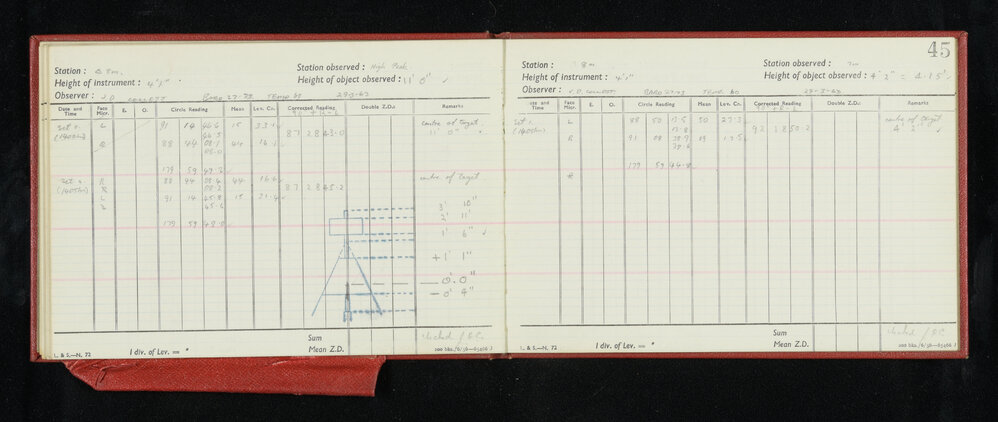 Station : 8m. Station observed : High Peak
Height of instrument : 4'1" Height of object observed : 11' 0"
Observer : J.D. BARO 27.73 TEMP 60 29-3-63
Date and Time Face Micr. E. O. Circle Reading Mean Lev. Co. Corrected Reading Double Z.D.s Remarks
Set 1. L 91 14 46.6 15 33.1 centre of target
(1400hr) 46.5 87 28 43.0 11' 0"
R 88 44 08.1 44 16.1
08.0
179 59 49.2
Set 2. R 88 44 08.4 44 16.6 centre of target
(1405hr) R 08.2 87 28 45.2
L 91 14 45.8 15 31.4
45.6
179 59 48.0
3' 10"
2' 11'
1' 6"
+1' 1"
0'.0"
-0' 4"
Sum checked
L. & S.—N. 72 1 div. of Lev. = " Mean Z.D. 200 bks./6/56—65466 J
45
Station : 8m Station observed : 7m
Height of instrument : 4'1" Height of object observed : 4' 2" = 4.15'
Observer : J.D. BARO 27.73 TEMP. 60 29-3-63
Date and Time Face Micr. E. O. Circle Reading Mean Lev. Co. Corrected Reading Double Z.D.s Remarks
Set 1. L 88 50 13.5 50 27.3 centre of target
(1400hr) 13.8 92 18 50.2 4' 2"
R 91 08 38.9 09
39.6
179 59 44.8
R
Sum checked
L. & S.—N. 72 1 div. of Lev. = " Mean Z.D. 200 bks./6/56—65466 J